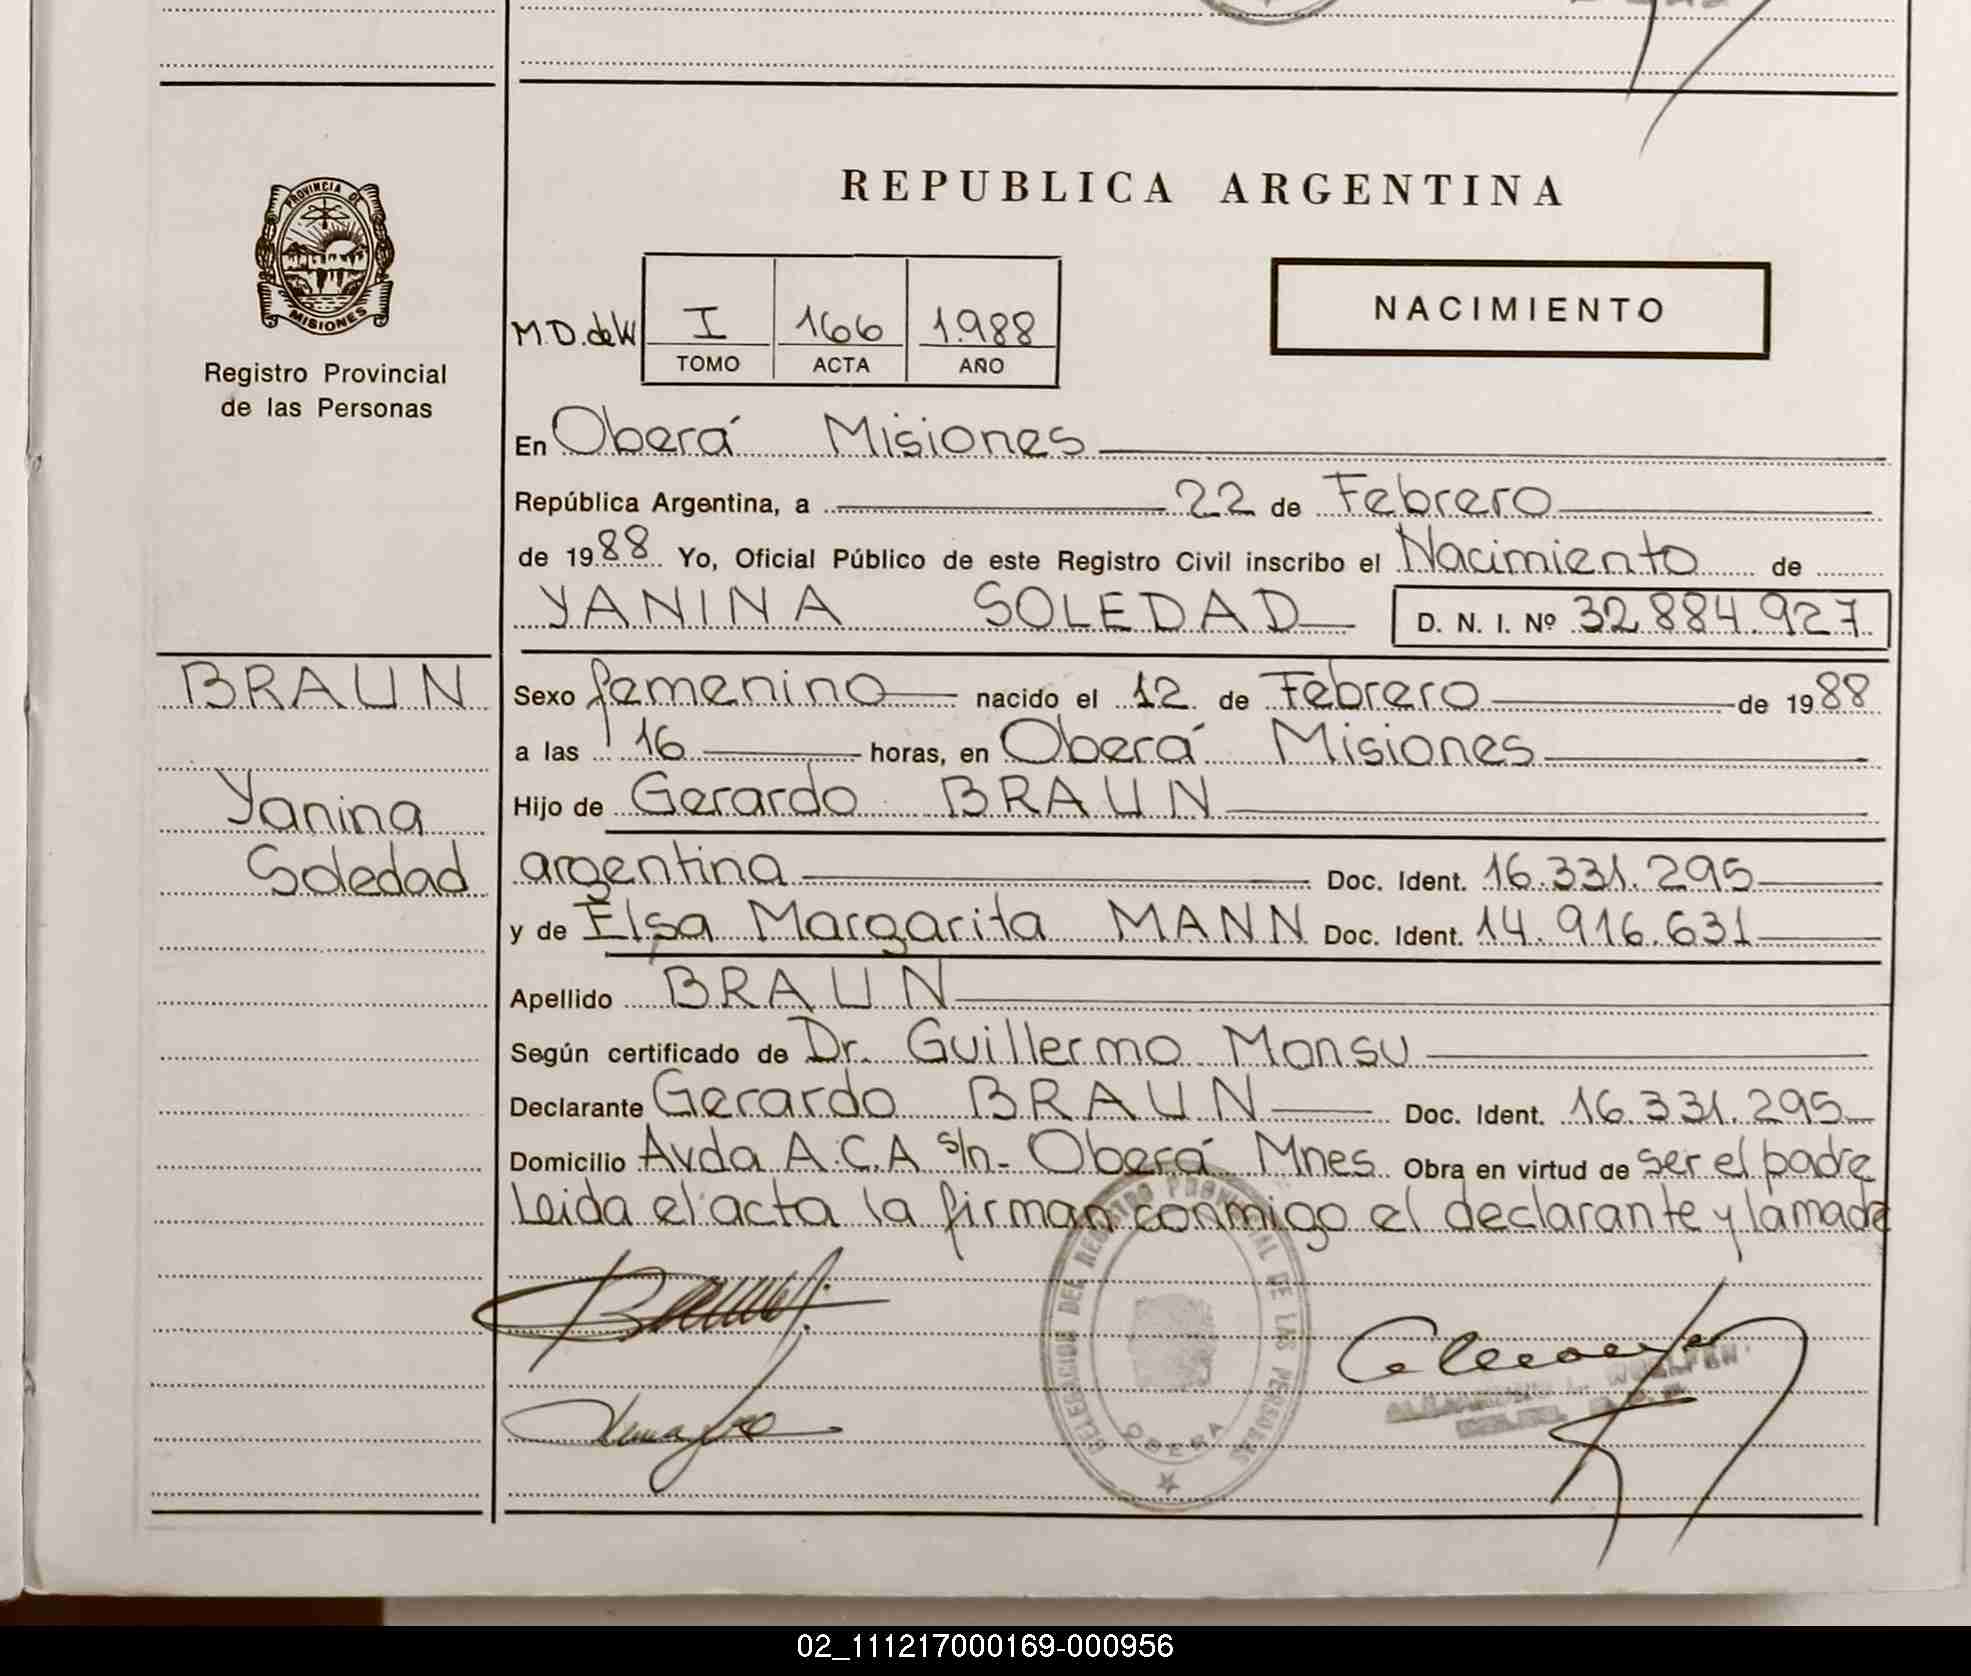 REPUBLICA ARGENTINA
PROVINCIA DE
MISIONES
Registro Provincial
de las Personas
M.D. de W
I 166 1.988
TOMO ACTA AÑO
NACIMIENTO
En Oberá Misiones
República Argentina, a 22 de Febrero
de 1988 Yo, Oficial Público de este Registro Civil inscribo el Nacimiento de
YANINA SOLEDAD D. N. I. Nº 32.884.927
BRAUN
Yanina
Soledad
Sexo femenino nacido el 12 de Febrero de 1988
a las 16 horas, en Oberá Misiones
Hijo de Gerardo BRAUN
argentina Doc. Ident. 16.331.295
y de Elsa Margarita MANN Doc. Ident. 14.916.631
Apellido BRAUN
Según certificado de Dr. Guillermo Monsu
Declarante Gerardo BRAUN Doc. Ident. 16.331.295
Domicilio Avda A.C.A s/n- Oberá Mnes Obra en virtud de ser el padre
Leida el acta la firman conmigo el declarante y la madre
DELEGACION DEL REGISTRO PROVINCIAL DE LAS PERSONAS
OBERA
02_111217000169-000956